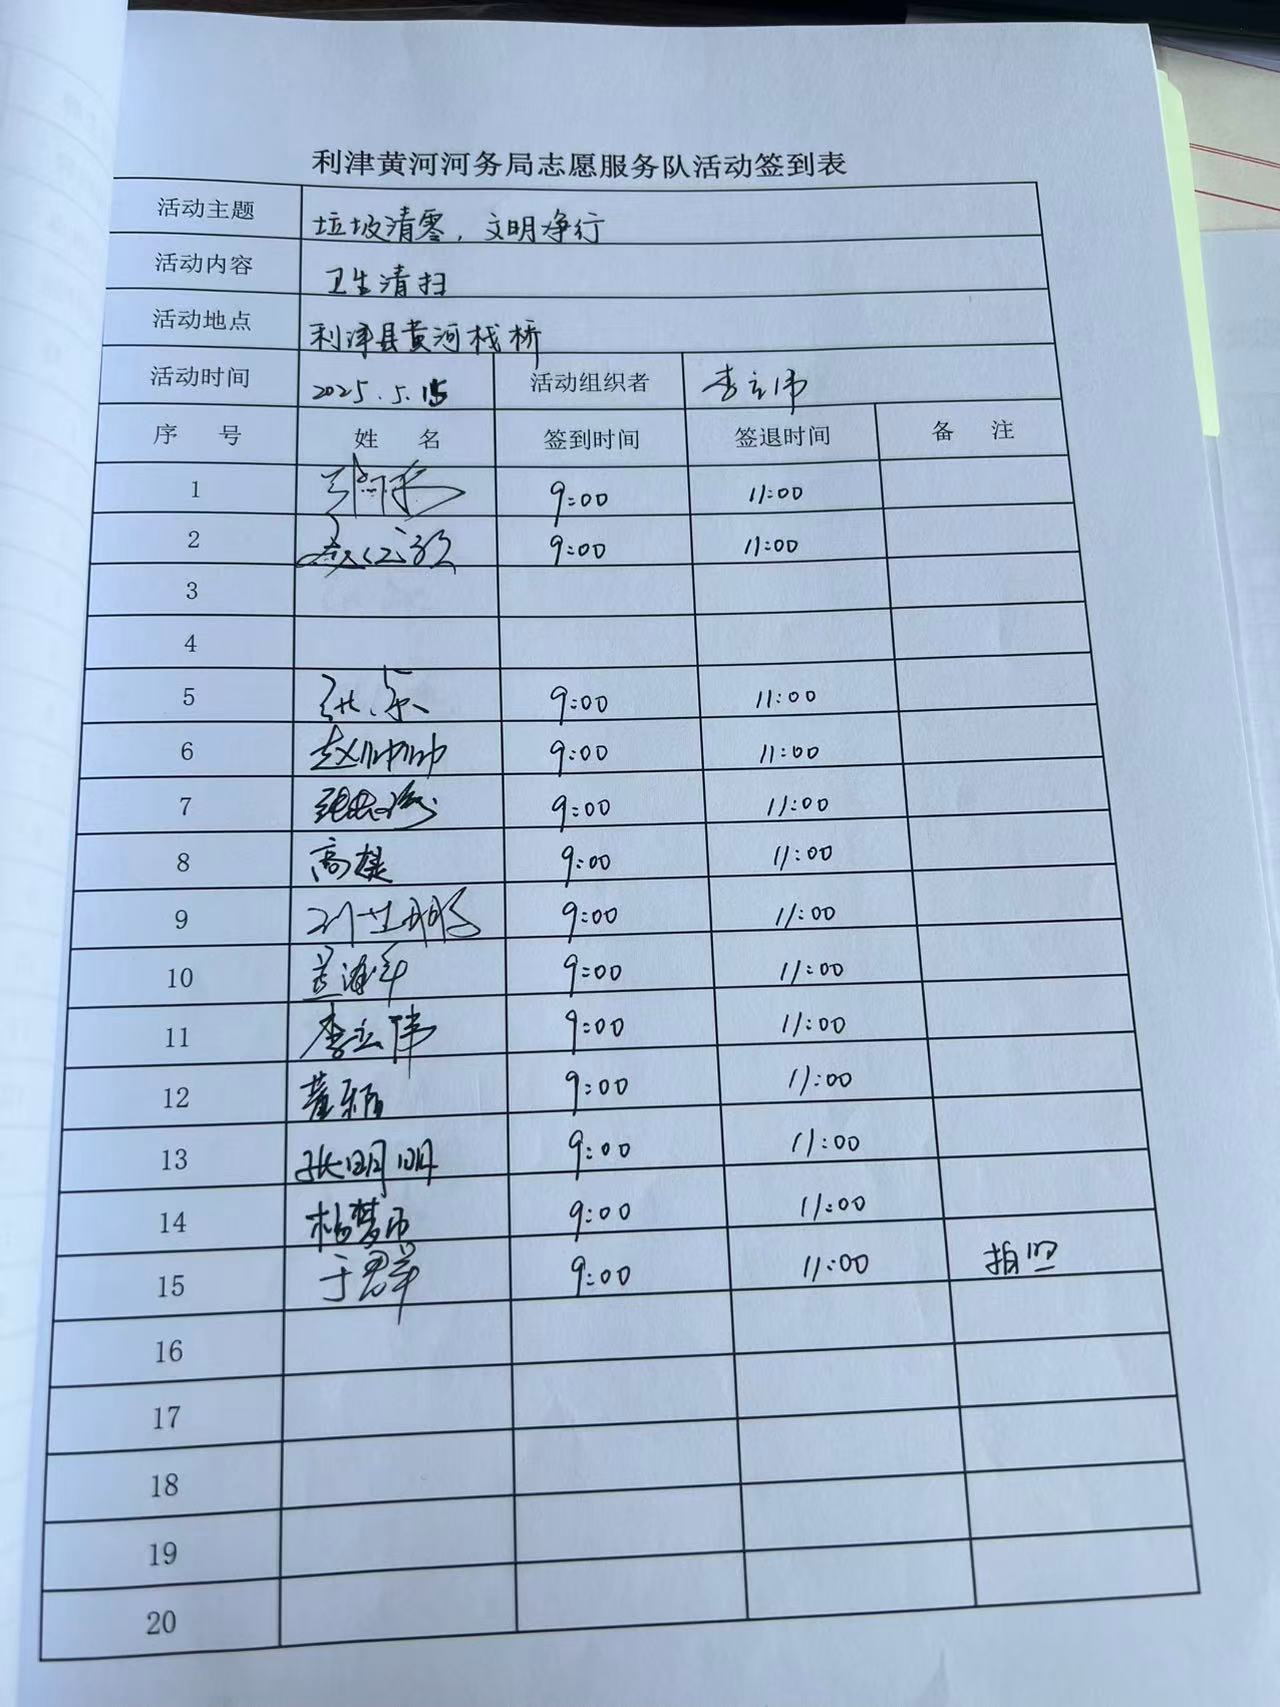 利津黄河河务局志愿服务队活动签到表
活动主题 垃圾清零，文明净行
活动内容 卫生清扫
活动地点 利津县黄河栈桥
活动时间 2025.5.15 活动组织者 李立伟
序 号 姓 名 签到时间 签退时间 备 注
1 9:00 11:00
2 9:00 11:00
3
4
5 9:00 11:00
6 赵帅帅 9:00 11:00
7 9:00 11:00
8 高雄 9:00 11:00
9 9:00 11:00
10 9:00 11:00
11 李立伟 9:00 11:00
12 董 9:00 11:00
13 张明明 9:00 11:00
14 杨梦 9:00 11:00
15 于君洋 9:00 11:00 拍照
16
17
18
19
20